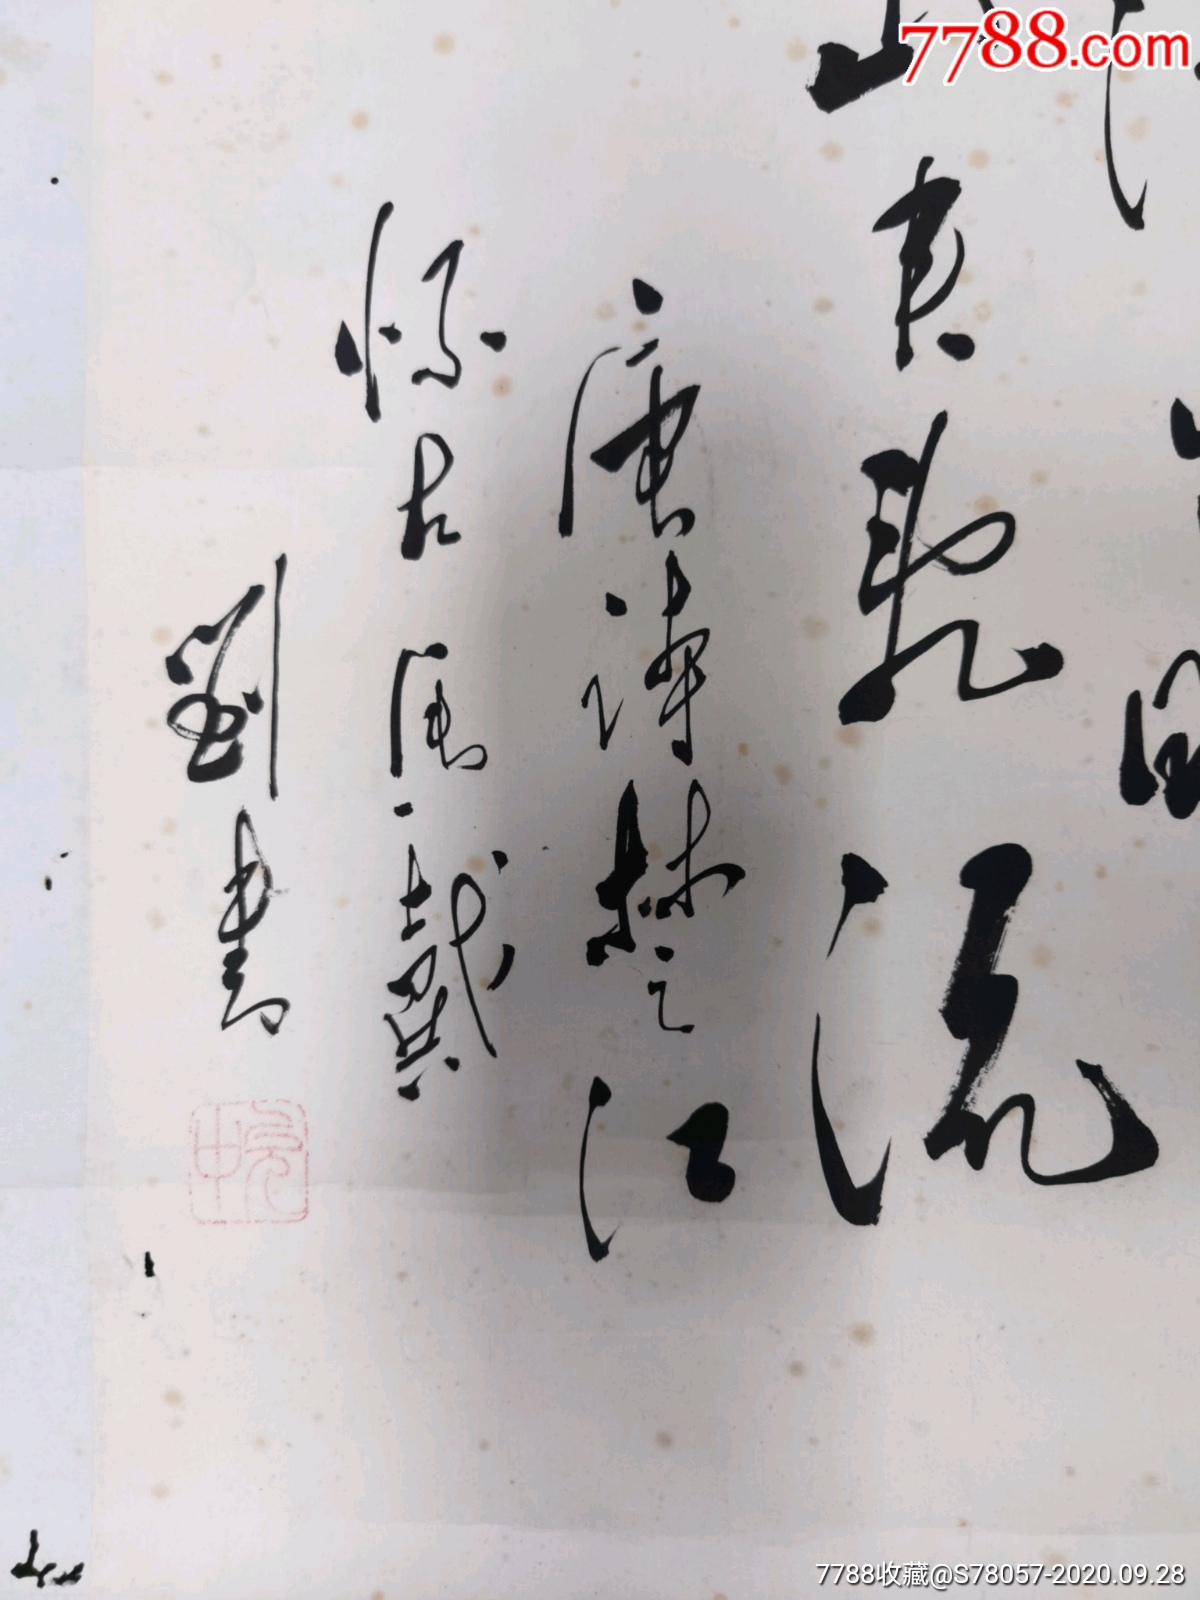 7788.com
山夹乱流
唐诗楚江
怀古 马戴
劉書
7788收藏@S78057-2020.09.28